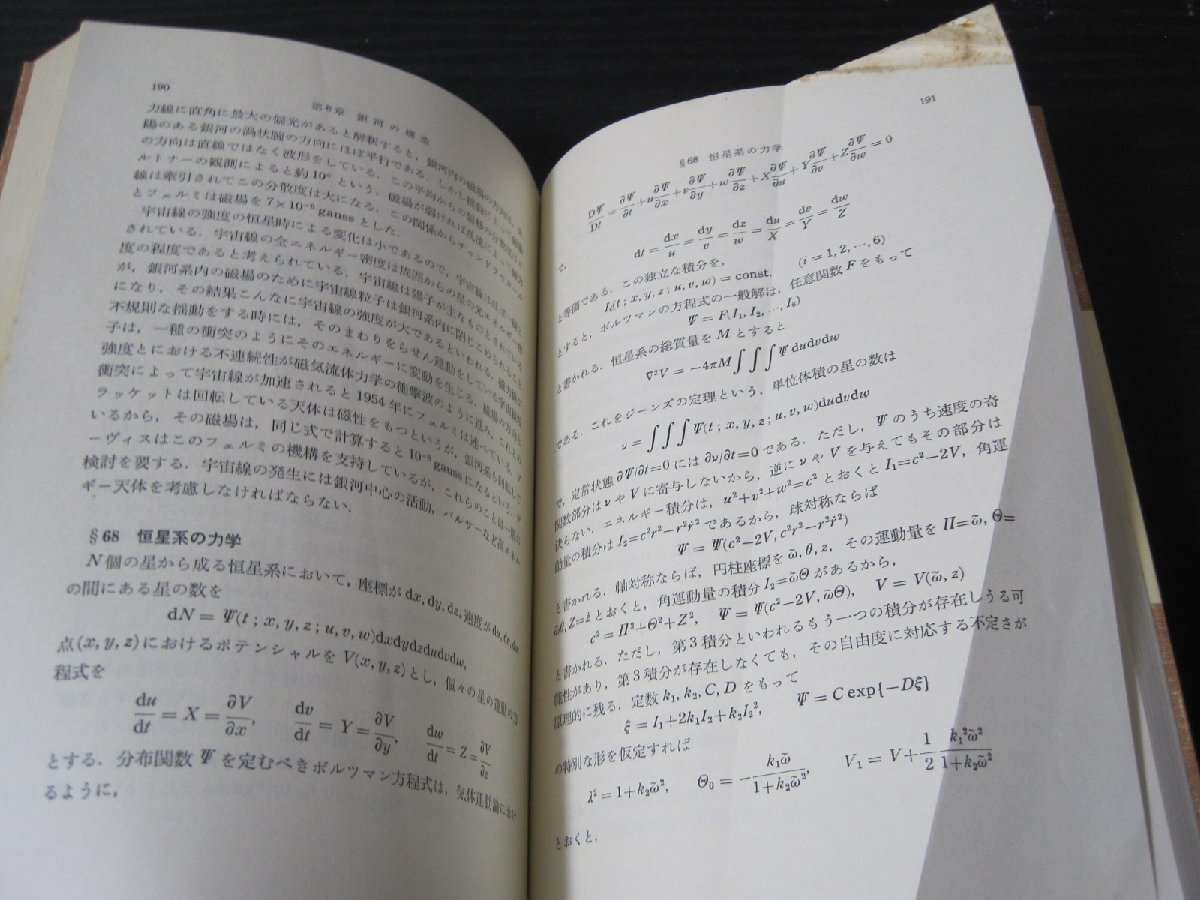 190
第8章 銀河の構造
力線に直角に最大の偏光があると解釈すると,銀河内の磁場の方向は,
陽のある銀河の渦状腕の方向にほぼ平行である.しかし
の方向は直線ではなく波形をしている.この平均からの偏移の分散
ルトナーの観測によると約10°という.磁場が弱ければ
線は牽引されてこの分散度は大になる.この関係からチャンドラセカール
とフェルミは磁場を 7×10⁻⁶ gauss とした.
宇宙線の強度の恒星時による変化は小であるので,宇宙線は
されている.宇宙線の全エネルギー密度は周囲からの星の光エネルギー密
度の程度であると考えられている.宇宙線は陽子が主なものとされている
が,銀河系内の磁場のために宇宙線粒子は銀河系内に閉じこめられる
になり,その結果こんなに宇宙線の強度が大であるといわれる.磁力線が
不規則な揺動をする時には,そのまわりをらせん運動をしている宇宙線
子は,一種の衝突のようにそのエネルギーに変動を生じる.
強度とにおける不連続性が磁気流体力学の衝撃波のように進み,これ
衝突によって宇宙線が加速されると1954年にフェルミは述べている.ブ
ラッケットは回転している天体は磁性をもつというが,銀河系も回転して
いるから,その磁場は,同じ式で計算すると 10⁻⁸ gauss になるという.デ
ーヴィスはこのフェルミの機構を支持しているが,これらのことは一層の
検討を要する.宇宙線の発生には銀河中心の活動,パルサーなど高エネル
ギー天体を考慮しなければならない.
§68 恒星系の力学
N個の星から成る恒星系において,座標が dx, dy, dz, 速度が du, dv, dw
の間にある星の数を
dN = Ψ(t ; x, y, z ; u, v, w)dxdydzdudvdw,
点(x, y, z)におけるポテンシャルを V(x, y, z)とし,個々の星の運動の方
程式を
du/dt = X = ∂V/∂x, dv/dt = Y = ∂V/∂y, dw/dt = Z = ∂V/∂z
とする.分布関数 Ψ を定むべきボルツマン方程式は,気体運動論におけ
るように,
191
§68 恒星系の力学
DΨ/Dt = ∂Ψ/∂t + u∂Ψ/∂x + v∂Ψ/∂y + w∂Ψ/∂z + X∂Ψ/∂u + Y∂Ψ/∂v + Z∂Ψ/∂w = 0
で,
dt = dx/u = dy/v = dz/w = du/X = dv/Y = dw/Z
と等価である.この独立な積分を,
Iᵢ(t ; x, y, z ; u, v, w) = const. (i = 1, 2, …, 6)
とすると,ボルツマンの方程式の一般解は,任意関数 F をもって
Ψ = F(I₁, I₂, …, I₆)
と書かれる.恒星系の総質量を M とすると
∇²V = −4πM∫∫∫Ψ dudvdw
である.これをジーンズの定理という.単位体積の星の数は
ν = ∫∫∫Ψ(t ; x, y, z ; u, v, w)dudvdw
で,定常状態 ∂Ψ/∂t=0 には ∂ν/∂t=0 である.ただし,Ψ のうち速度の奇
関数部分は ν や V に寄与しないから,逆に ν や V を与えてもその部分は
決らない.エネルギー積分は,u²+v²+w²=c² とおくと I₁=c²−2V, 角運
動量の積分は I₂=c²r²−r²ṙ² であるから,球対称ならば
Ψ = Ψ(c²−2V, c²r²−r²ṙ²)
と書かれる.軸対称ならば,円柱座標を ω̃, θ, z, その運動量を Π=ω̃, Θ=
ω̃θ, Z=ż とおくと,角運動量の積分 I₂=ω̃Θ があるから,
c² = Π²+Θ²+Z², Ψ = Ψ(c²−2V, ω̃Θ), V = V(ω̃, z)
と書かれる.ただし,第3積分といわれるもう一つの積分が存在しうる可
能性があり,第3積分が存在しなくても,その自由度に対応する不定さが
原理的に残る.定数 k₁, k₂, C, D をもって
ξ = I₁+2k₁I₂+k₂I₂², Ψ = C exp{−Dξ}
の特別な形を仮定すれば
λ² = 1+k₂ω̃², Θ₀ = −k₁ω̃/(1+k₂ω̃²), V₁ = V+(1/2)(k₁²ω̃²/(1+k₂ω̃²))
とおくと,